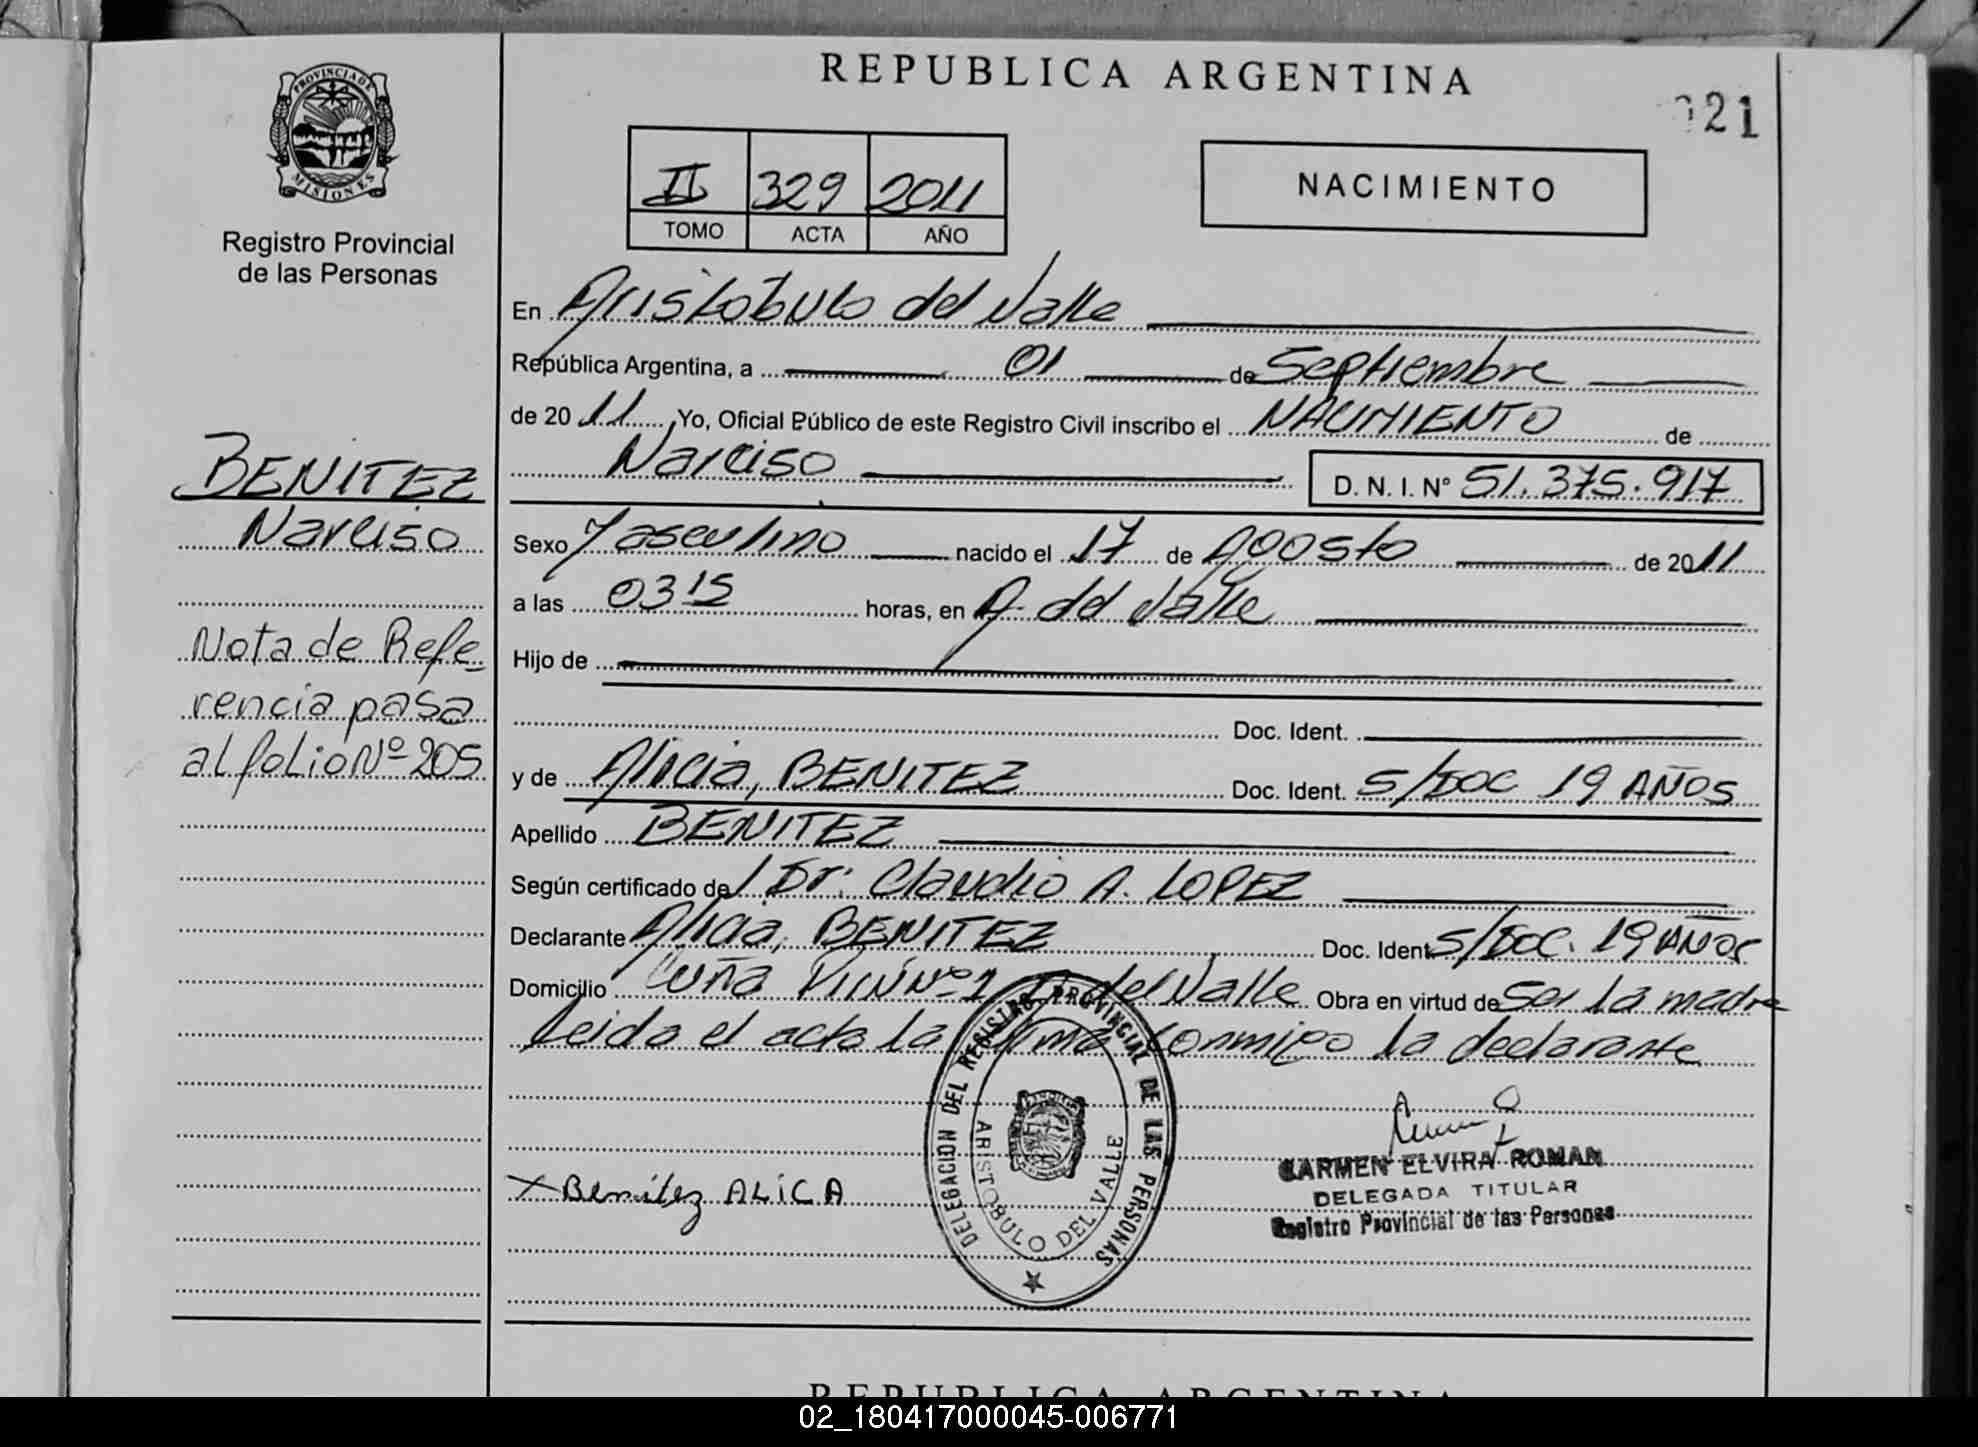 REPUBLICA ARGENTINA
021
PROVINCIA DE
MISIONES
Registro Provincial
de las Personas
II 329 2011
TOMO ACTA AÑO
NACIMIENTO
En Aristobulo del Valle
República Argentina, a 01 de Septiembre
de 2011 Yo, Oficial Público de este Registro Civil inscribo el NACIMIENTO de
Narciso D. N. I. Nº 51.375.917
BENITEZ
Narciso
Nota de Refe-
rencia pasa
al folio Nº 205
Sexo Masculino nacido el 17 de Agosto de 2011
a las 03 15 horas, en A. del Valle
Hijo de
Doc. Ident.
y de Alicia, BENITEZ Doc. Ident. S/DOC 19 AÑOS
Apellido BENITEZ
Según certificado de Dr. Claudio A. LOPEZ
Declarante Alicia, BENITEZ Doc. Ident S/DOC. 19 AÑOS
Domicilio Cuña Pirú Nº1 A. del Valle Obra en virtud de Ser la madre
leida el acta la firma conmigo la declarante
DELEGACION DEL REGISTRO PROVINCIAL DE LAS PERSONAS
ARISTOBULO DEL VALLE
X Benitez ALiCA
CARMEN ELVIRA ROMAN
DELEGADA TITULAR
Registro Provincial de las Personas
REPUBLICA ARGENTINA
02_180417000045-006771